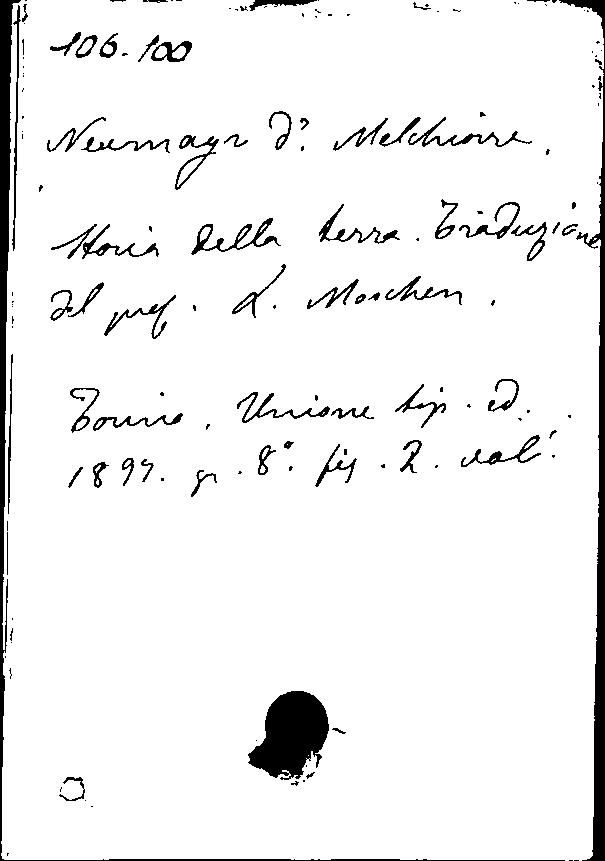 106.100
Neumayr D.r Melchiorre.
Storia della terra. Traduzione
del prof. L. Moschen.
Torino, Unione tip. ed.
1897. gr. 8°. fig. 2. vol.i